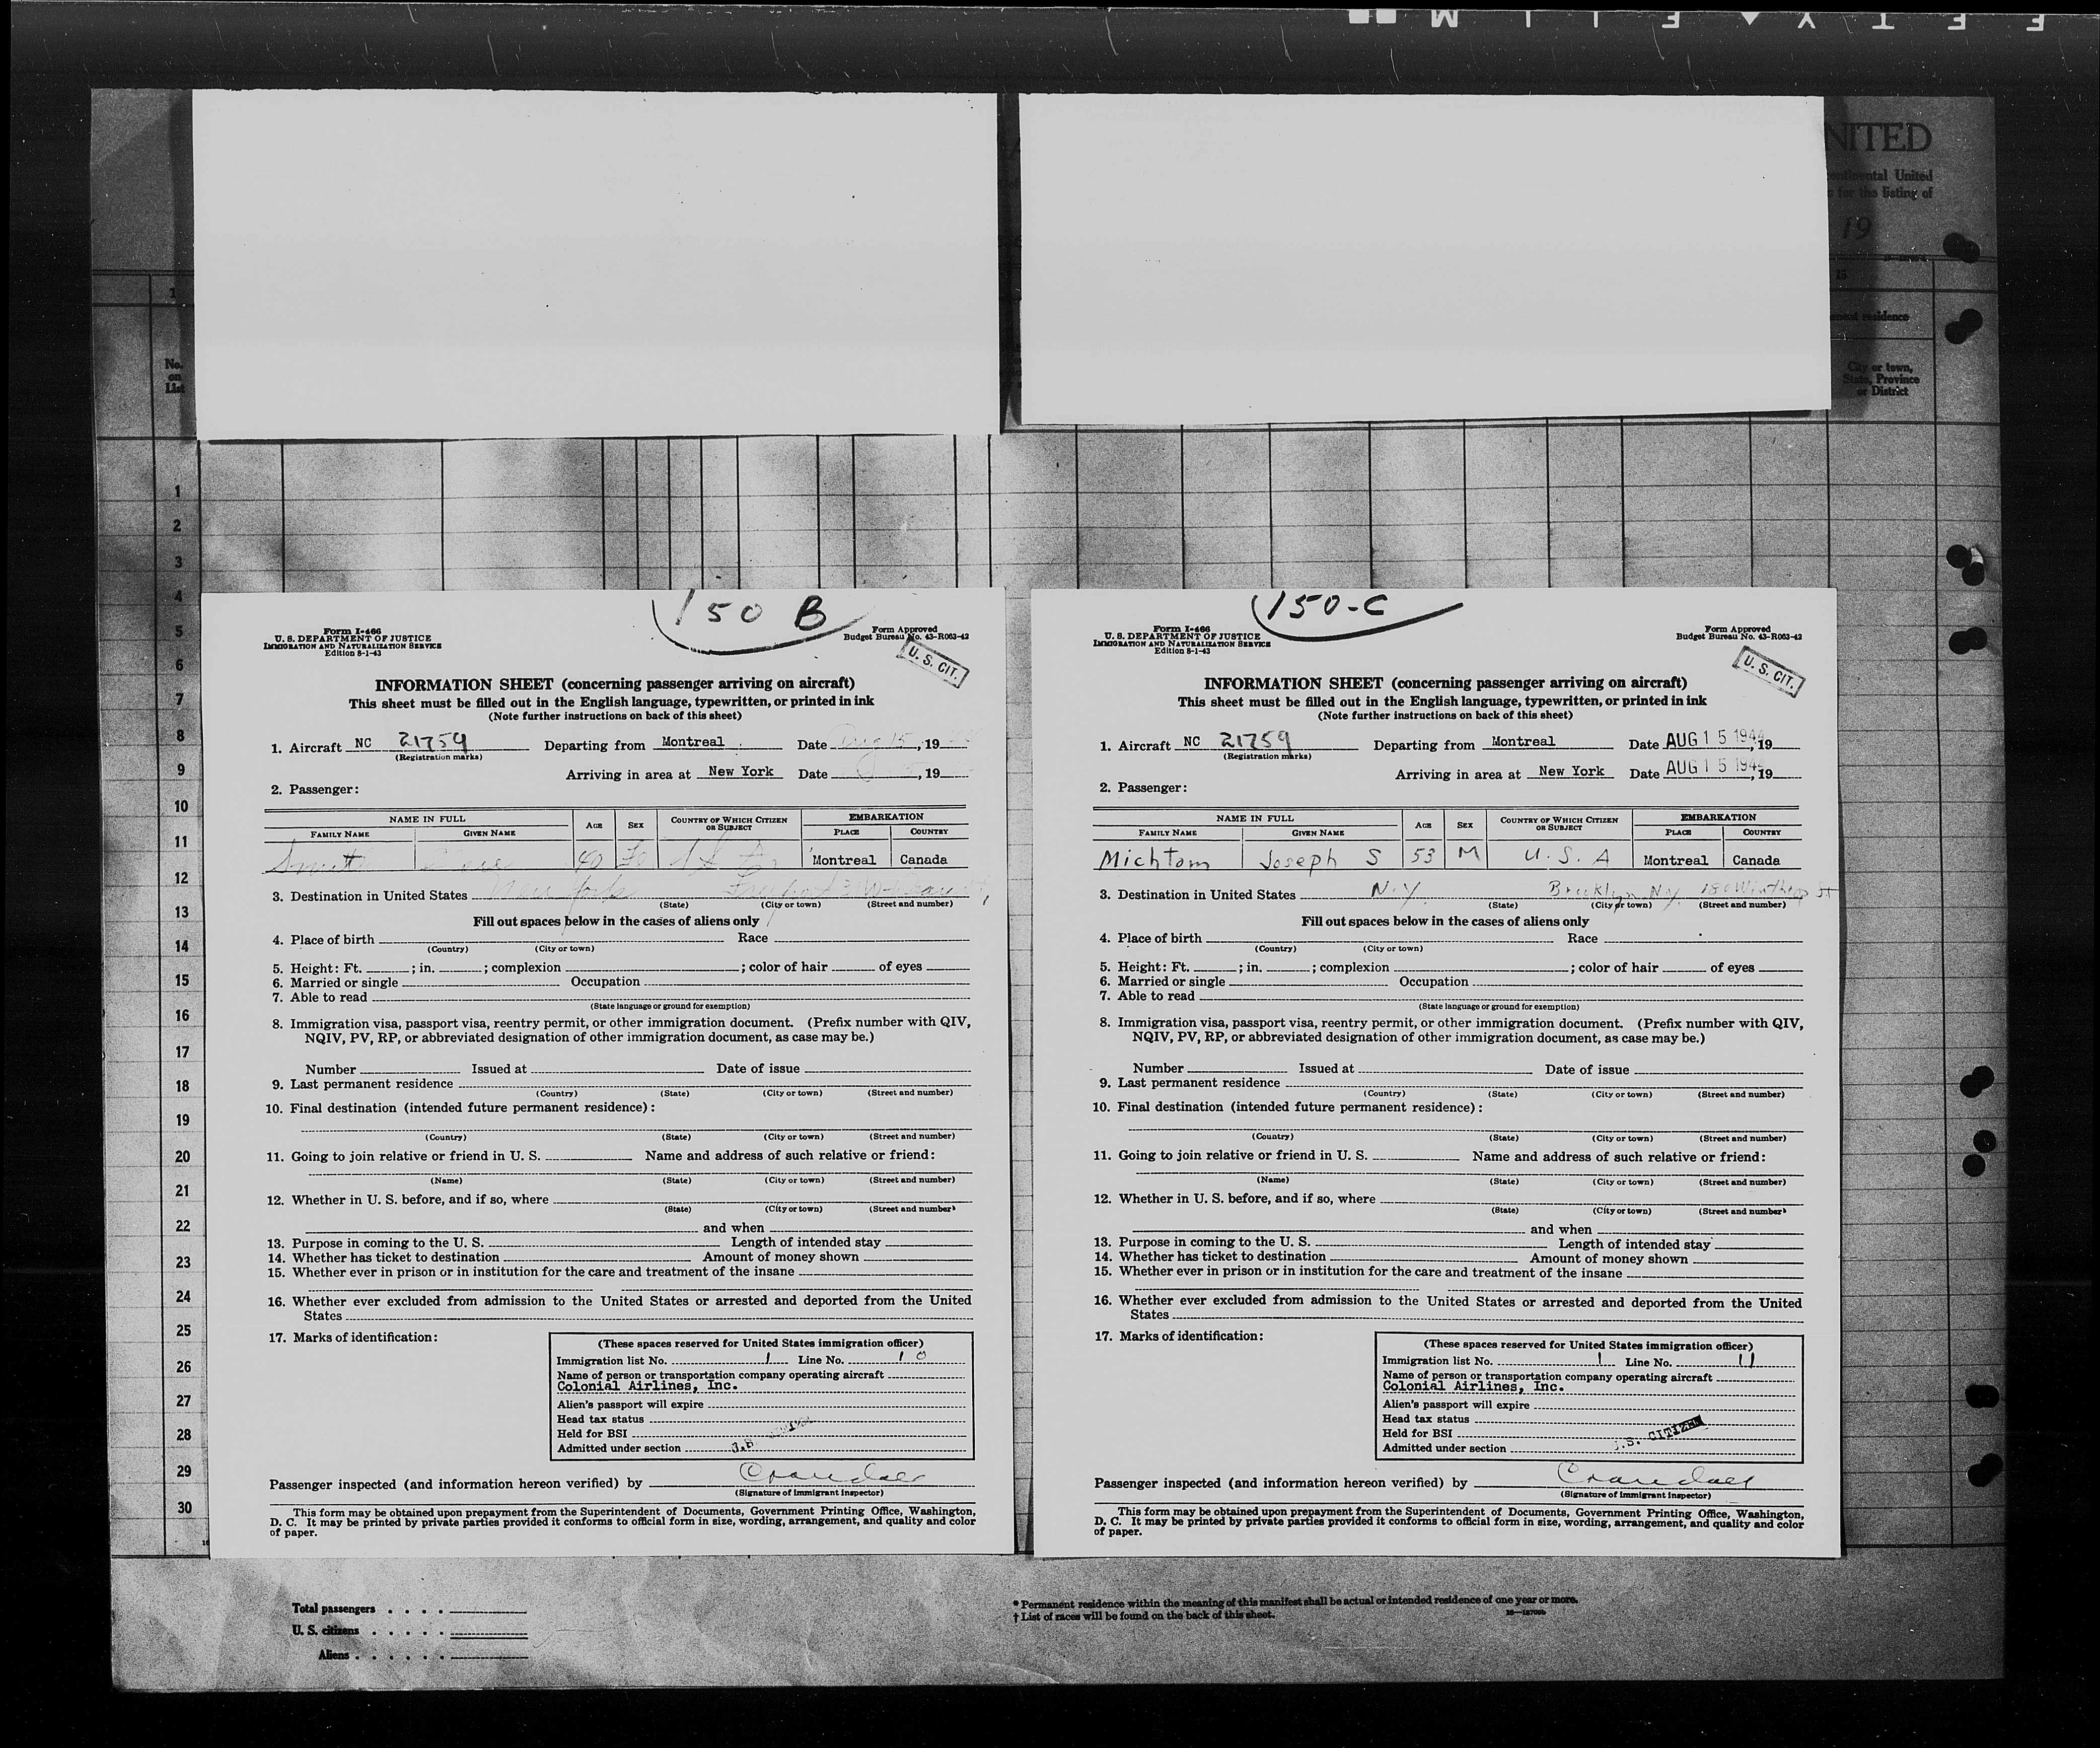 NITED
continental United
for the listing of
19
15
residence
No.
on
List
City or town,
State, Province
or District
1
2
3
4
5
6
7
8
9
10
11
12
13
14
15
16
17
18
19
20
21
22
23
24
25
26
27
28
29
30
150 B
Form I-466
U. S. DEPARTMENT OF JUSTICE
IMMIGRATION AND NATURALIZATION SERVICE
Edition 8-1-43
Form Approved
Budget Bureau No. 43-R063-42
U. S. CIT.
INFORMATION SHEET (concerning passenger arriving on aircraft)
This sheet must be filled out in the English language, typewritten, or printed in ink
(Note further instructions on back of this sheet)
1. Aircraft NC 21759 Departing from Montreal Date Aug 15, 19
(Registration marks)
Arriving in area at New York Date , 19
2. Passenger:
NAME IN FULL AGE SEX COUNTRY OF WHICH CITIZEN OR SUBJECT EMBARKATION
FAMILY NAME GIVEN NAME PLACE COUNTRY
Smith 40 Montreal Canada
3. Destination in United States New York Freeport
(State) (City or town) (Street and number)
Fill out spaces below in the cases of aliens only
4. Place of birth Race
(Country) (City or town)
5. Height: Ft. ; in. ; complexion ; color of hair of eyes
6. Married or single Occupation
7. Able to read
(State language or ground for exemption)
8. Immigration visa, passport visa, reentry permit, or other immigration document. (Prefix number with QIV,
NQIV, PV, RP, or abbreviated designation of other immigration document, as case may be.)
Number Issued at Date of issue
9. Last permanent residence
(Country) (State) (City or town) (Street and number)
10. Final destination (intended future permanent residence):
(Country) (State) (City or town) (Street and number)
11. Going to join relative or friend in U. S. Name and address of such relative or friend:
(Name) (State) (City or town) (Street and number)
12. Whether in U. S. before, and if so, where
(State) (City or town) (Street and number)
and when
13. Purpose in coming to the U. S. Length of intended stay
14. Whether has ticket to destination Amount of money shown
15. Whether ever in prison or in institution for the care and treatment of the insane
16. Whether ever excluded from admission to the United States or arrested and deported from the United
States
17. Marks of identification:
(These spaces reserved for United States immigration officer)
Immigration list No. 1 Line No. 10
Name of person or transportation company operating aircraft
Colonial Airlines, Inc.
Alien's passport will expire
Head tax status
Held for BSI
Admitted under section
Passenger inspected (and information hereon verified) by Crandall
(Signature of Immigrant Inspector)
This form may be obtained upon prepayment from the Superintendent of Documents, Government Printing Office, Washington,
D. C. It may be printed by private parties provided it conforms to official form in size, wording, arrangement, and quality and color
of paper.
150-C
Form I-466
U. S. DEPARTMENT OF JUSTICE
IMMIGRATION AND NATURALIZATION SERVICE
Edition 8-1-43
Form Approved
Budget Bureau No. 43-R063-42
U. S. CIT.
INFORMATION SHEET (concerning passenger arriving on aircraft)
This sheet must be filled out in the English language, typewritten, or printed in ink
(Note further instructions on back of this sheet)
1. Aircraft NC 21759 Departing from Montreal Date AUG 15 1944, 19
(Registration marks)
Arriving in area at New York Date AUG 15 1944, 19
2. Passenger:
NAME IN FULL AGE SEX COUNTRY OF WHICH CITIZEN OR SUBJECT EMBARKATION
FAMILY NAME GIVEN NAME PLACE COUNTRY
Michtom Joseph S 53 M U. S. A Montreal Canada
3. Destination in United States N.Y. Brooklyn N.Y. 180 Winthrop St
(State) (City or town) (Street and number)
Fill out spaces below in the cases of aliens only
4. Place of birth Race
(Country) (City or town)
5. Height: Ft. ; in. ; complexion ; color of hair of eyes
6. Married or single Occupation
7. Able to read
(State language or ground for exemption)
8. Immigration visa, passport visa, reentry permit, or other immigration document. (Prefix number with QIV,
NQIV, PV, RP, or abbreviated designation of other immigration document, as case may be.)
Number Issued at Date of issue
9. Last permanent residence
(Country) (State) (City or town) (Street and number)
10. Final destination (intended future permanent residence):
(Country) (State) (City or town) (Street and number)
11. Going to join relative or friend in U. S. Name and address of such relative or friend:
(Name) (State) (City or town) (Street and number)
12. Whether in U. S. before, and if so, where
(State) (City or town) (Street and number)
and when
13. Purpose in coming to the U. S. Length of intended stay
14. Whether has ticket to destination Amount of money shown
15. Whether ever in prison or in institution for the care and treatment of the insane
16. Whether ever excluded from admission to the United States or arrested and deported from the United
States
17. Marks of identification:
(These spaces reserved for United States immigration officer)
Immigration list No. 1 Line No. 11
Name of person or transportation company operating aircraft
Colonial Airlines, Inc.
Alien's passport will expire
Head tax status
Held for BSI
Admitted under section U.S. CITIZEN
Passenger inspected (and information hereon verified) by Crandall
(Signature of Immigrant Inspector)
This form may be obtained upon prepayment from the Superintendent of Documents, Government Printing Office, Washington,
D. C. It may be printed by private parties provided it conforms to official form in size, wording, arrangement, and quality and color
of paper.
Total passengers
U. S. citizens
Aliens
* Permanent residence within the meaning of this manifest shall be actual or intended residence of one year or more.
† List of races will be found on the back of this sheet.